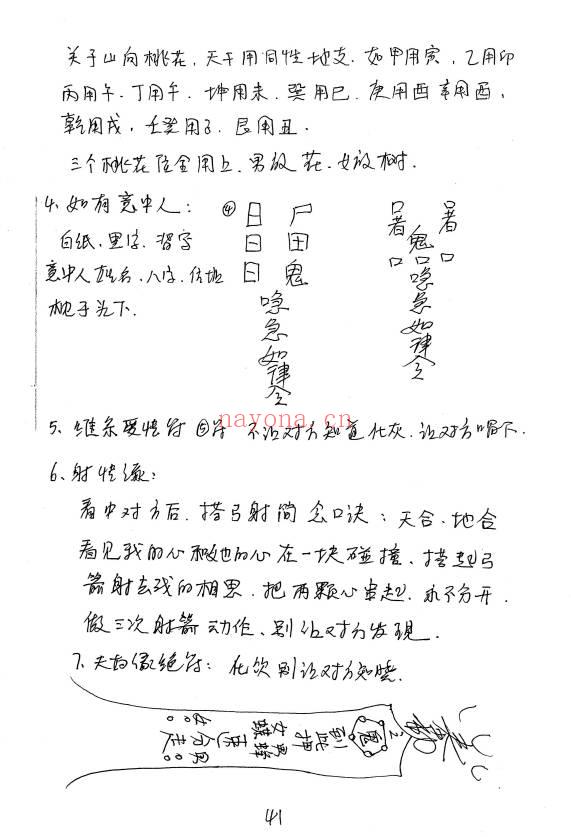 关于山向桃花，天干用同性地支．如甲用寅，乙用卯
丙用午．丁用午．坤用未．巽用巳．庚用酉辛用酉，
乾用戌，壬癸用子．艮用丑．
三个桃花位全用上．男放花．女放树．
4、如有意中人：
白纸、黑字，写字
意中人姓名、八字、住址
枕于头下．
④
日 尸
日 田
日 鬼
唸
急
如
律
令
署 署
鬼
口口口口
唸
急
如
律
令
nayona.cn
5、维系爱情符 ⑤片 不让对方知道化灰．让对方喝下．
6、射情缘：
看中对方后．搭弓射箭念口诀：天合、地合
看见我的心和她的心在一块碰撞、搭起弓
箭射去我的相思．把两颗心串起．永不分开．
做三次射箭动作、别让对方发现．
7、夫妇 绝符：化饮别让对方知晓．
鬼
到此押
男
女
41